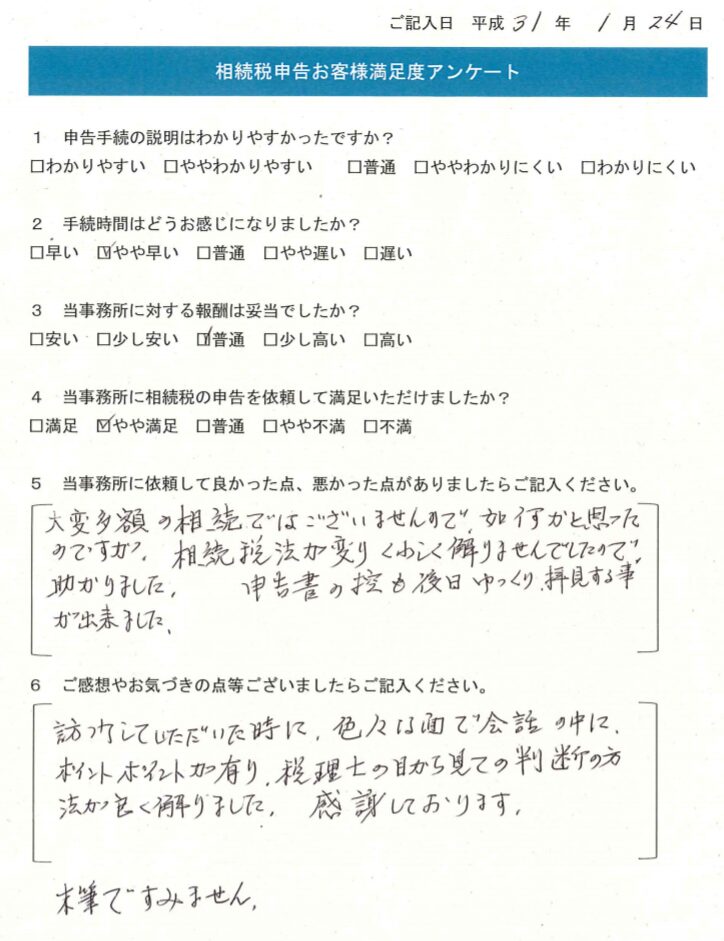 ご記入日 平成 31 年 1 月 24 日
相続税申告お客様満足度アンケート
1 申告手続の説明はわかりやすかったですか？
□わかりやすい □ややわかりやすい □普通 □ややわかりにくい □わかりにくい
2 手続時間はどうお感じになりましたか？
□早い ☑やや早い □普通 □やや遅い □遅い
3 当事務所に対する報酬は妥当でしたか？
□安い □少し安い ☑普通 □少し高い □高い
4 当事務所に相続税の申告を依頼して満足いただけましたか？
□満足 ☑やや満足 □普通 □やや不満 □不満
5 当事務所に依頼して良かった点、悪かった点がありましたらご記入ください。
大変多額の相続ではございませんので、如何かと思った
のですが、相続税法が変り くわしく解りませんでしたので、
助かりました。 申告書の控も後日ゆっくり、拝見する事
が出来ました、
6 ご感想やお気づきの点等ございましたらご記入ください。
していただいた時に、色々な面で会話の中に、
ポイントポイントが有り、税理士の目から見ての判断の方
法が良く解りました。 感謝しております。
末筆ですみません。